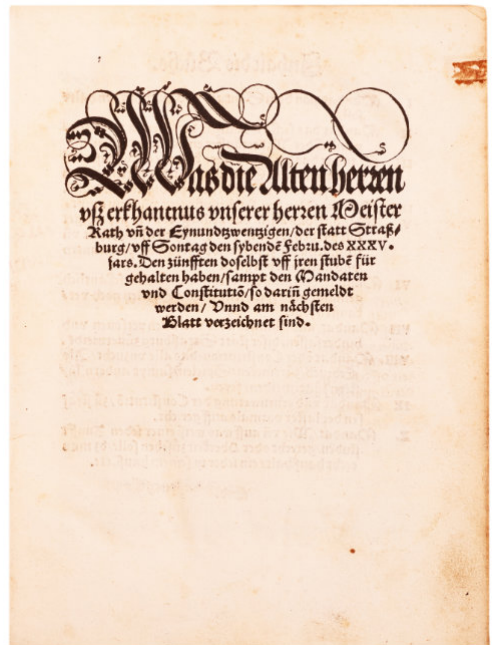 Was die Alten herren
vß erkhantnus vnserer herren Meister
Rath vñ der Eynundtzwentzigen/der statt Straß-
burg/vff Sontag den sybendē Febru. des XXXV.
jars. Den zünfften doselbst vff jren stubē für
gehalten haben/sampt den Mandaten
vnd Constitutiō/so dariñ gemeldt
werden/ Vnnd am nächsten
Blatt verzeichnet sind.